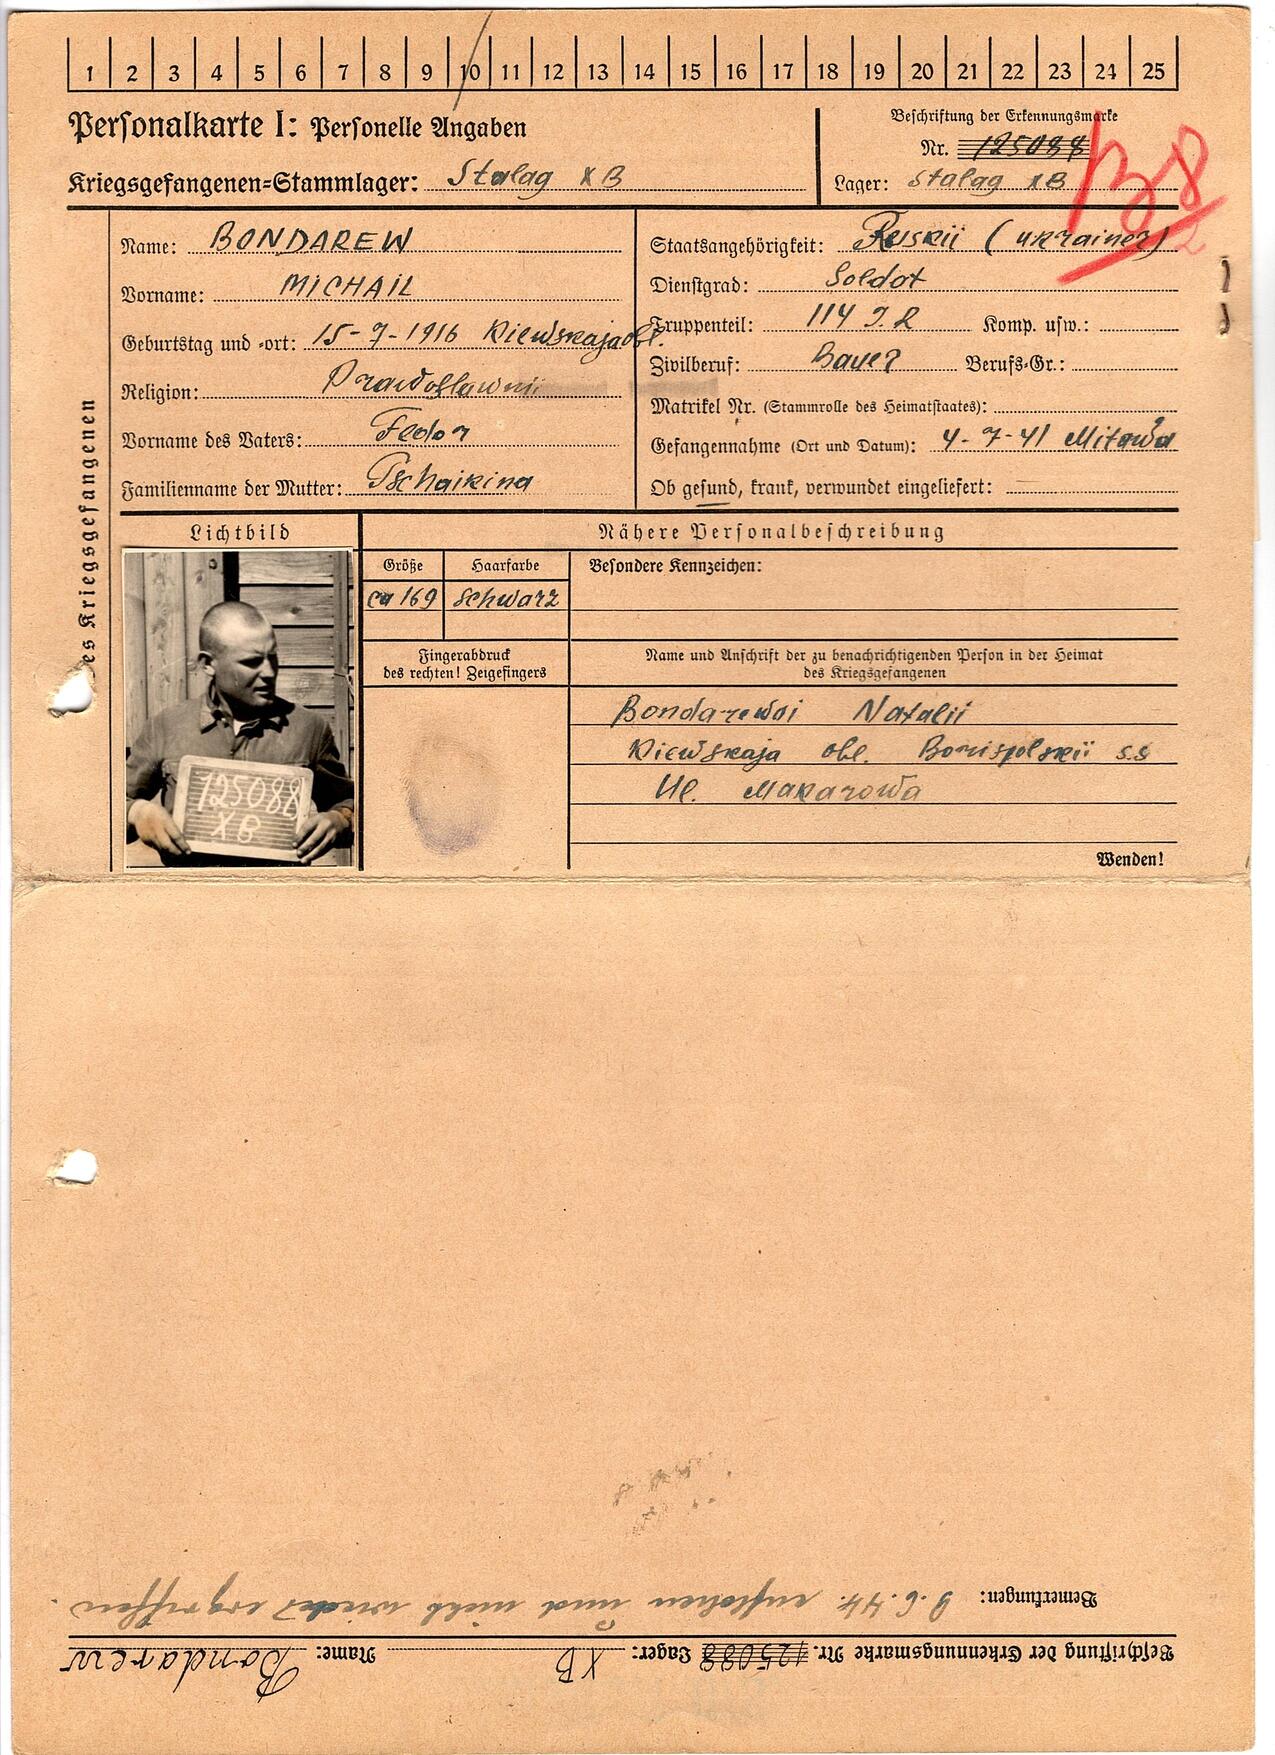 1 2 3 4 5 6 7 8 9 10 11 12 13 14 15 16 17 18 19 20 21 22 23 24 25
Personalkarte I: Personelle Angaben
Kriegsgefangenen-Stammlager: Stalag XB
Beschriftung der Erkennungsmarke
Nr. 125088
Lager: Stalag XB
Name: BONDAREW
Vorname: MICHAIL
Geburtstag und -ort: 15-7-1916 Kiewskaja obl.
Religion: Prawoslawnii
Vorname des Vaters: Fedor
Familienname der Mutter: Tschaikina
Staatsangehörigkeit: Russkii (ukrainer)
Dienstgrad: Soldat
Truppenteil: 114 I.R Komp. usw.:
Zivilberuf: Bauer Berufs-Gr.:
Matrikel Nr. (Stammrolle des Heimatstaates):
Gefangennahme (Ort und Datum): 4-7-41 Mitawa
Ob gesund, krank, verwundet eingeliefert:
es Kriegsgefangenen
Lichtbild
125088
XB
Nähere Personalbeschreibung
Größe Haarfarbe Besondere Kennzeichen:
ca 169 schwarz
Fingerabdruck
des rechten! Zeigefingers
Name und Anschrift der zu benachrichtigenden Person in der Heimat
des Kriegsgefangenen
Bondarewoi Natalii
Kiewskaja obl. Borispolskii s.s
Ul. Makarowa
Wenden!
Beschriftung der Erkennungsmarke Nr. 125088 Lager: XB Name: Bondarew
Bemerkungen: 9.6.44. entflohen und nicht wieder ergriffen.